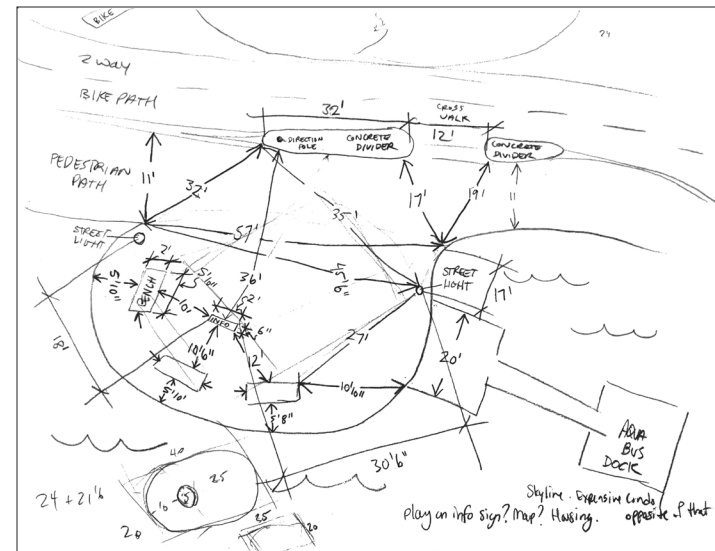 BIKE
24
2 WAY
BIKE PATH
32'
CROSS
WALK
12'
DIRECTION
POLE
CONCRETE
DIVIDER
CONCRETE
DIVIDER
PEDESTRIAN
PATH
11'
32'
35'
17'
19'
11
STREET
LIGHT
57'
2'
BENCH
5'10"
10'
36'
2'
INFO
6"
STREET
LIGHT
17'
18'
10'6"
12'
27'
20'
5'10'
5'8"
10'10"
30'6"
AQUA
BUS
DOCK
40
25
10
24 + 21'6
20
25
20
Skyline. Expensive Condo
play on info sign? Map? Housing. opposite of that